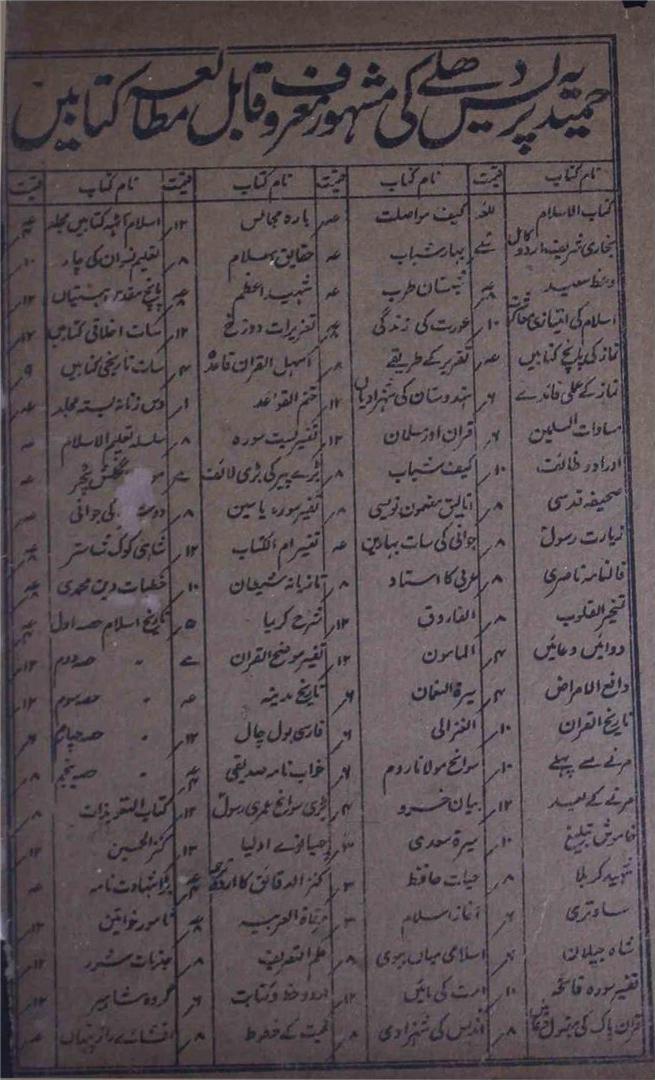 حمیدیہ پریس دھلے کی مشہور معروف قابل مطالعہ کتابیں
نام کتاب قیمت نام کتاب قیمت نام کتاب قیمت نام کتاب قیمت
کتاب الاسلام کیف مواصلت بارہ مجالس ۱۲؍ اسلام کی کتابیں مجلد
بخاری شریف اردو کامل بہار شباب حقایق اسلام ۸؍ تعلیم نسواں کی چار ۱۰؍
وعظ سعید شبستان طرب شہید اعظم پانچ مقدس ہستیاں ۱۲؍
اسلام کی امتیازی ۱۰؍ عورت کی زندگی تعزیرات دوزخ ۱۲؍ سات اخلاقی کتابیں ۱۲؍
نماز کی پانچ کتابیں تقریر کے طریقے ۸؍ اسہل القرآن قاعدہ ۴؍ سات تاریخی کتابیں ۹؍
نماز کے علمی فائدے ۶؍ ہندوستان کی شہزادیاں ۱۲؍ ختم القواعد ۱؍ دس زنانہ بستہ مجلد
مساوات المسلمین ۶؍ قرآن اور مسلمان ۱۲؍ تفسیر بست سورہ ۸؍ سلسلہ تعلیم الاسلام
اوراد و ظائف ۱۰؍ کیف شباب ۸؍ بڑے پیر کی بڑی لائف
صحیفہ قدسی ۸؍ اتالیق مضمون نویسی ۸؍ تفسیر سورہ یاسین ۸؍ کی جوانی
زیارت رسول ۸؍ جوانی کی سات بہاریں تفسیر ام الکتاب ۱۲؍ شاہی کوک شاستر
فالنامہ ناصری ۸؍ عربی کا استاد ۸؍ تازیانہ شیطان ۱۰؍ خطبات دین محمدی
تسخیر القلوب ۸؍ الفاروق ۱۲؍ شرح کریما ۵؍ تاریخ اسلام حصہ اول
دوائیں دعائیں ۴؍ المامون ۱۲؍ تفسیر موضح القرآن 〃 حصہ دوم ۱۲؍
دافع الامراض ۴؍ سیرۃ النعمان ۶؍ تاریخ مدینہ 〃 حصہ سوم ۱۲؍
تاریخ القرآن ۱۰؍ الغزالی ۶؍ فارسی بول چال ۱۲؍ 〃 حصہ چہارم ۶؍
مرنے سے پہلے ۱۰؍ سوانح مولانا روم ۶؍ خواب نامہ صدیقی 〃 حصہ پنجم ۸؍
مرنے کے بعد ۱۲؍ بیان خسرو ۴؍ بڑی سوانح عمری رسول ۱۲؍ کتاب التعویذات ۸؍
خاموش تبلیغ ۱۰؍ سیرۃ سعدی ۳؍ اولیا ۱۳؍ ذکر الحسین ۱۲؍
شہید کربلا ۸؍ حیات حافظ ۳؍ کنز الدقائق کا اردو بڑا شہادت نامہ
ساوتری ۶؍ آغاز اسلام ۳؍ مرقاۃ العربیہ نامور خواتین ۱۲؍
شاہ جیلان ۶؍ اسلامی میاں بیوی ۸؍ علم التصریف ۸؍ جذبات شرر ۱۲؍
تفسیر سورہ فاتحہ ۱۰؍ امت کی مائیں ۱۲؍ اردو خط و کتابت ۶؍ گروہ مشاہیر ۱۲؍
قرآن پاک کی مقبول دعائیں ۸؍ اندلس کی شہزادی ۸؍ محبت کے خطوط ۸؍ افشائے راز پنہاں